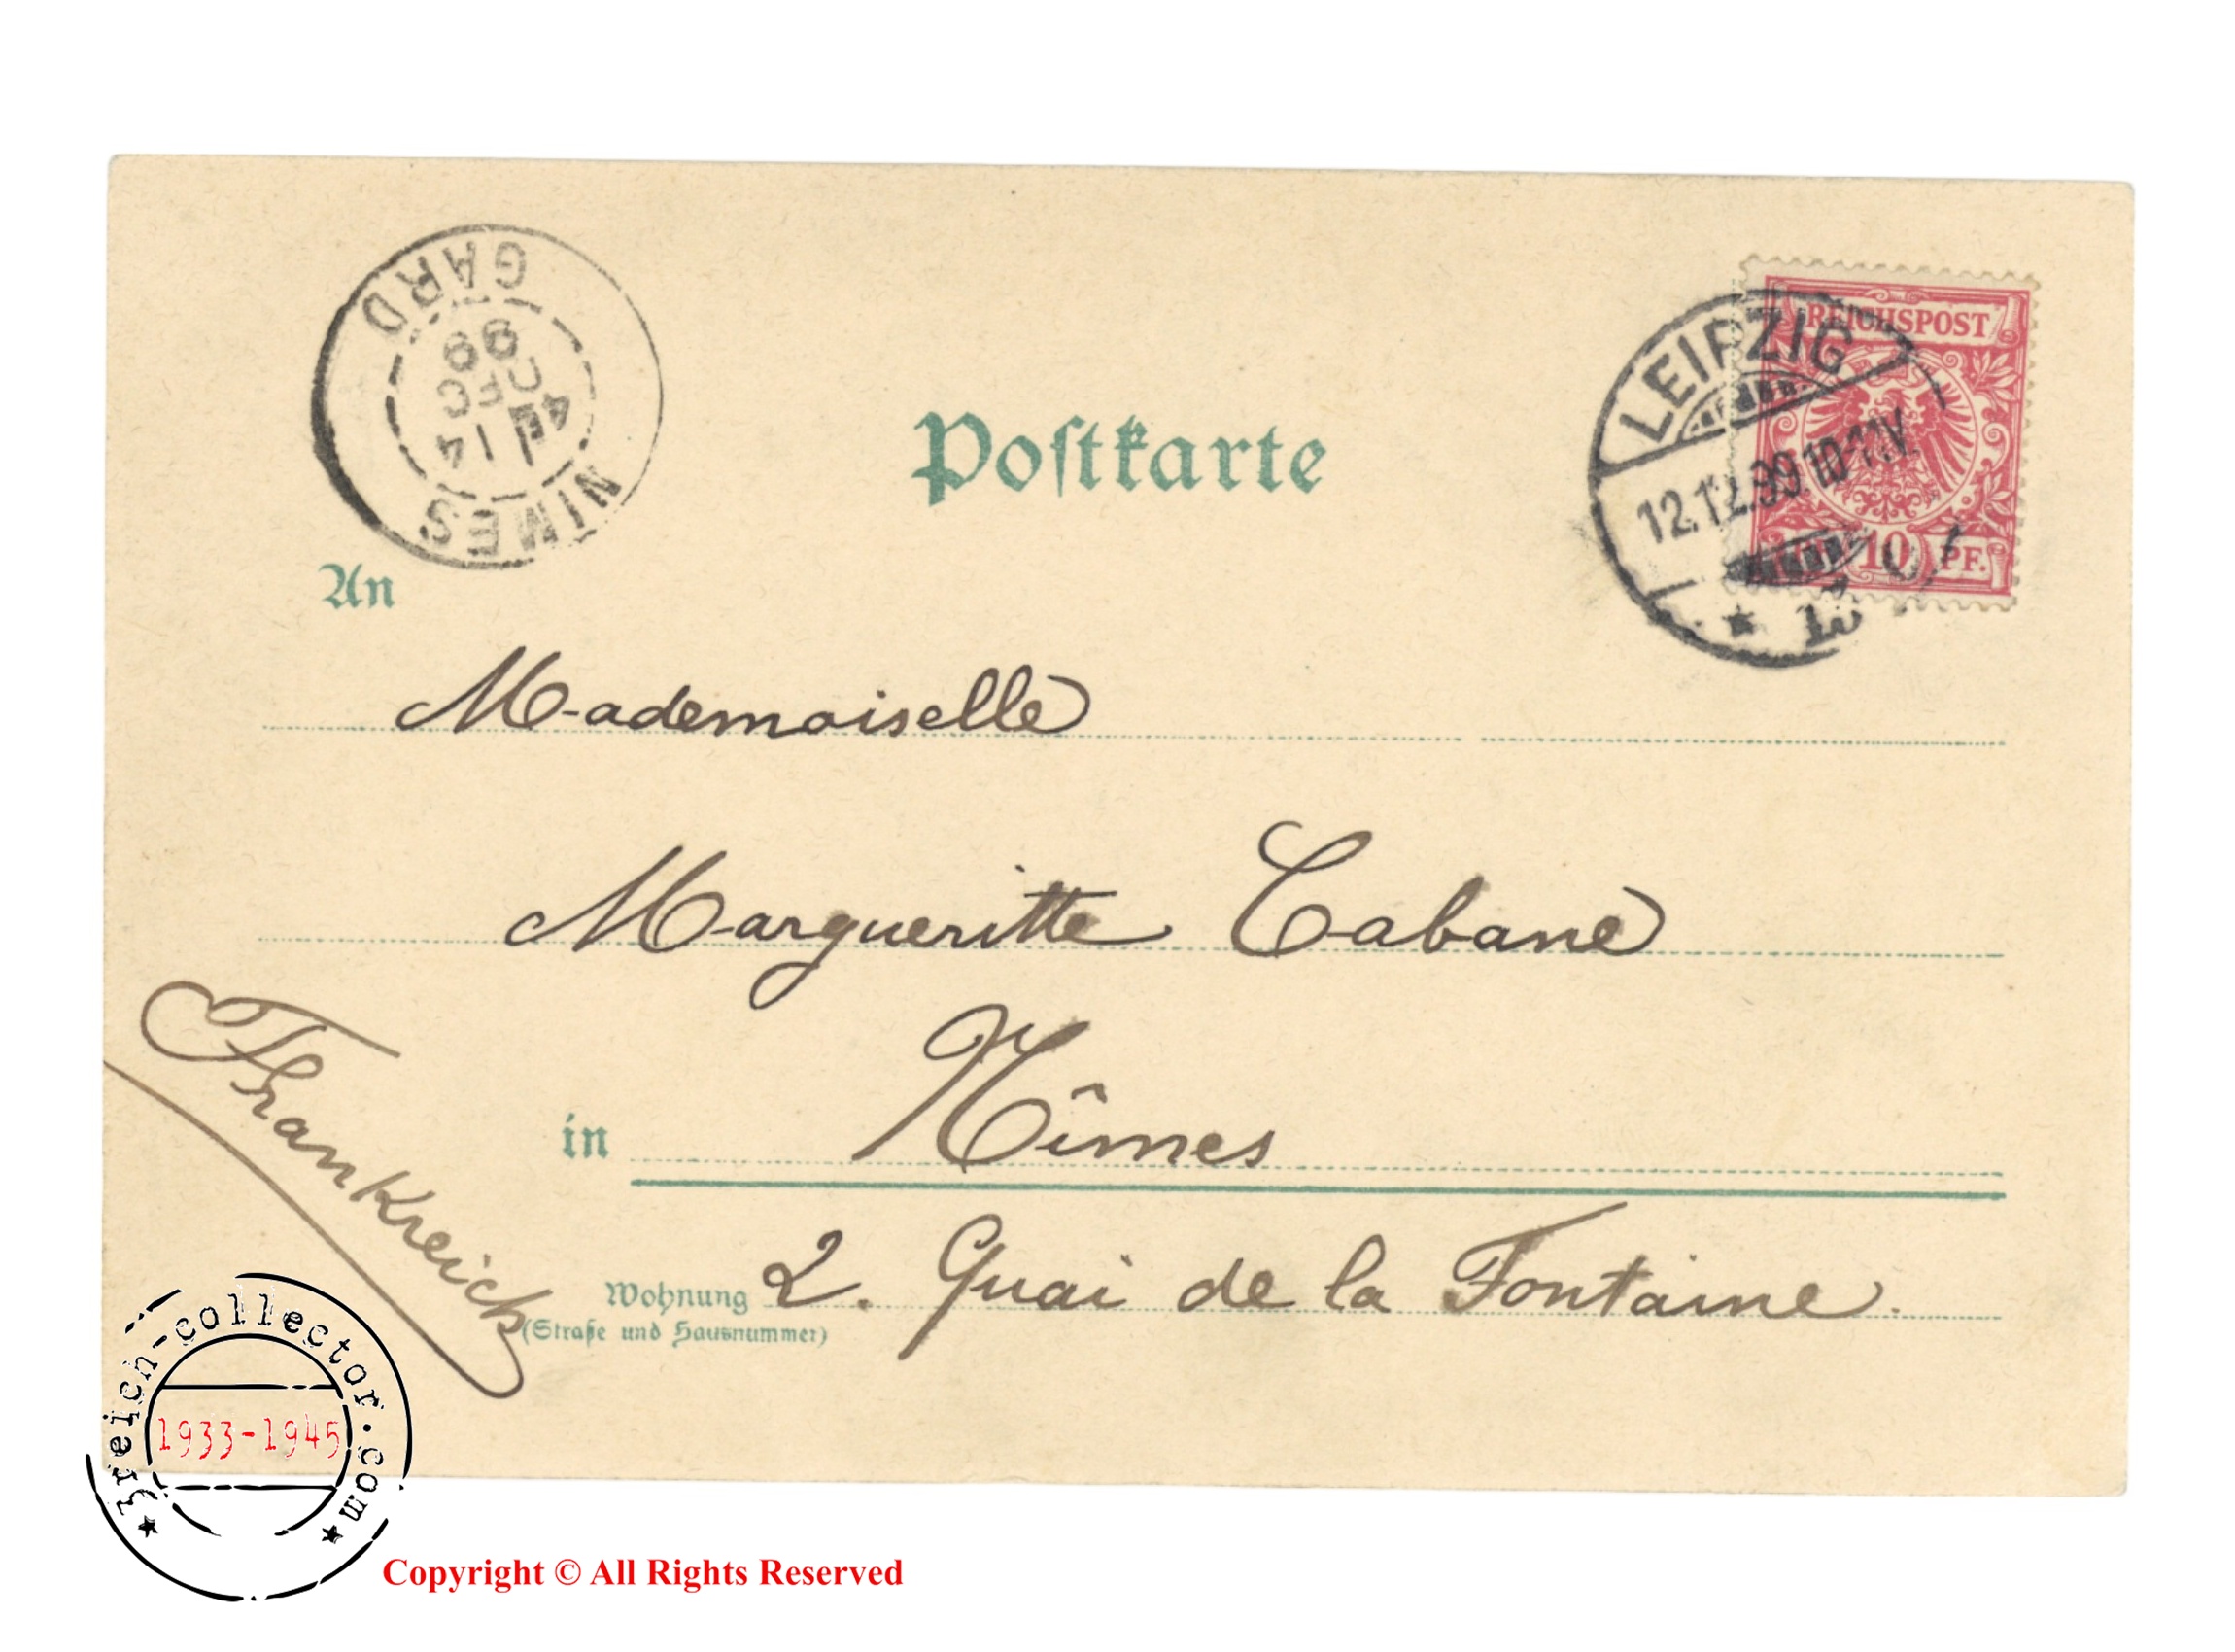 GARD
99
DEC
14
NIMES
Postkarte
REICHSPOST
LEIPZIG
12.12.99.10-11V.
10 PF.
* 13
An
Mademoiselle
Margueritte Cabane
in Nîmes
Wohnung 2. Quai de la Fontaine.
(Straße und Hausnummer)
Frankreich
3reich-collector.com
1933-1945
Copyright © All Rights Reserved